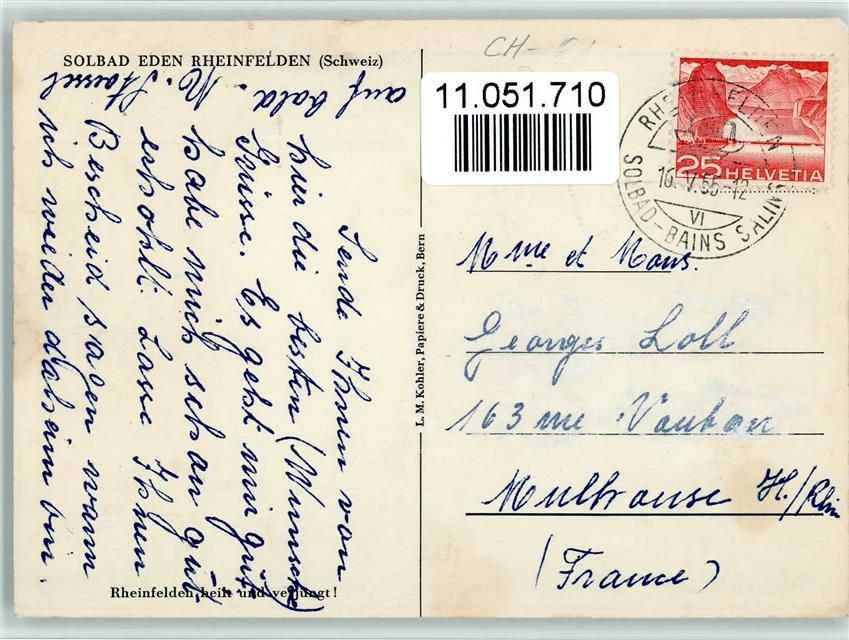 SOLBAD EDEN RHEINFELDEN (Schweiz)
Sende Ihnen von
hier die besten (Wünsche)
Grüsse. Es geht mir gut
habe mich schon gut
erhohlt. Lasse Ihnen
Bescheid sagen wann
ich wieder daheim bin.
auf bald.
Rheinfelden heilt und verjüngt!
L. M. Kohler, Papiere & Druck, Bern
CH-
11.051.710
RHEINFELDEN
16.V.55-12
VI
SOLBAD-BAINS SALINS
25 HELVETIA
Mme et Mons.
Georges Loll
163 rue Vauban
Mulhouse H./Rhin
(France)